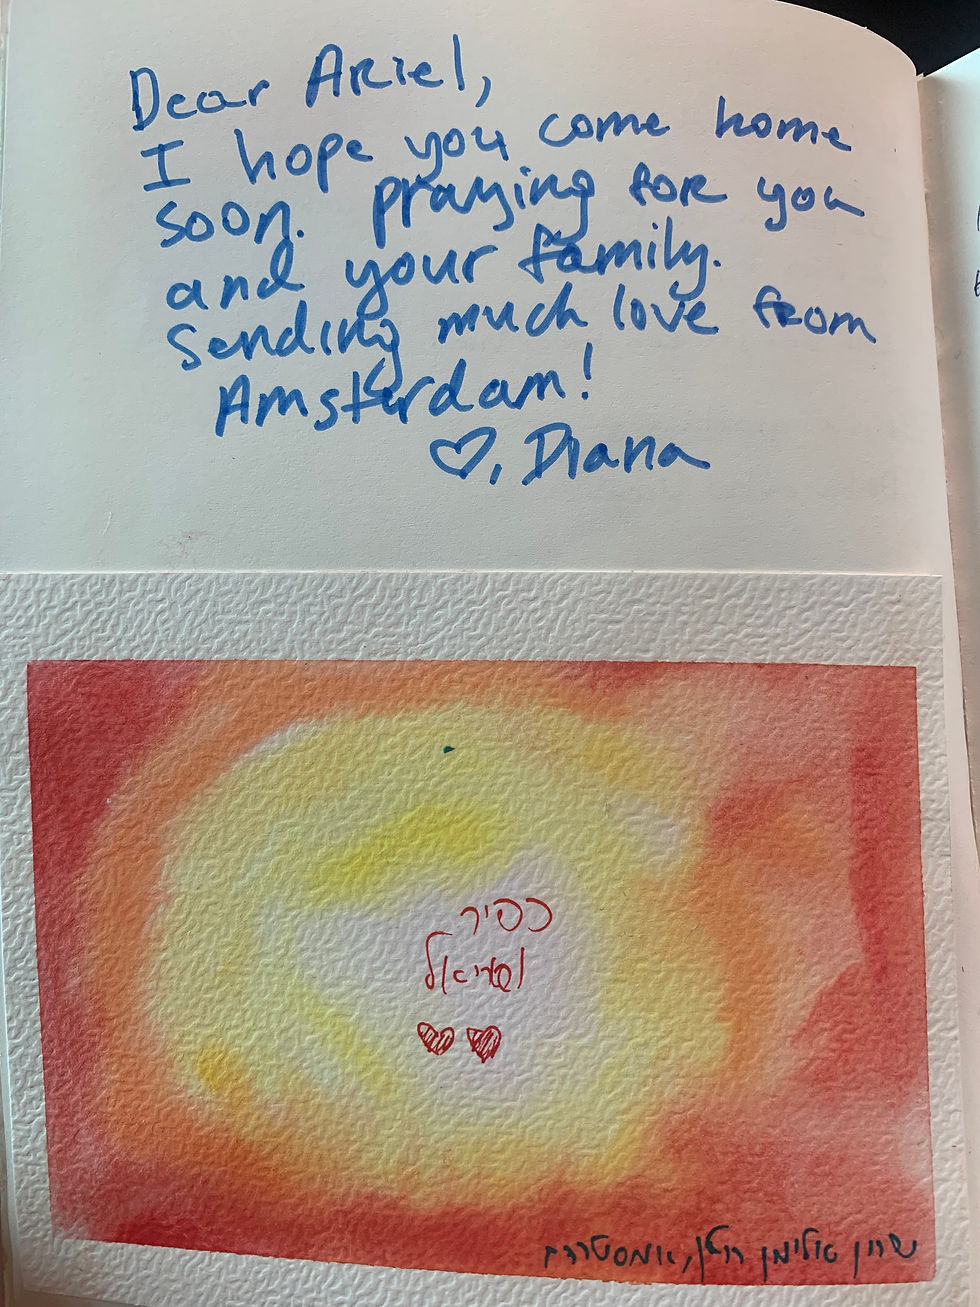 Dear Ariel,
I hope you come home
soon. praying for you
and your family.
Sending much love from
Amsterdam!
♡, Diana
כפיר
ואריאל
אמסטרדם